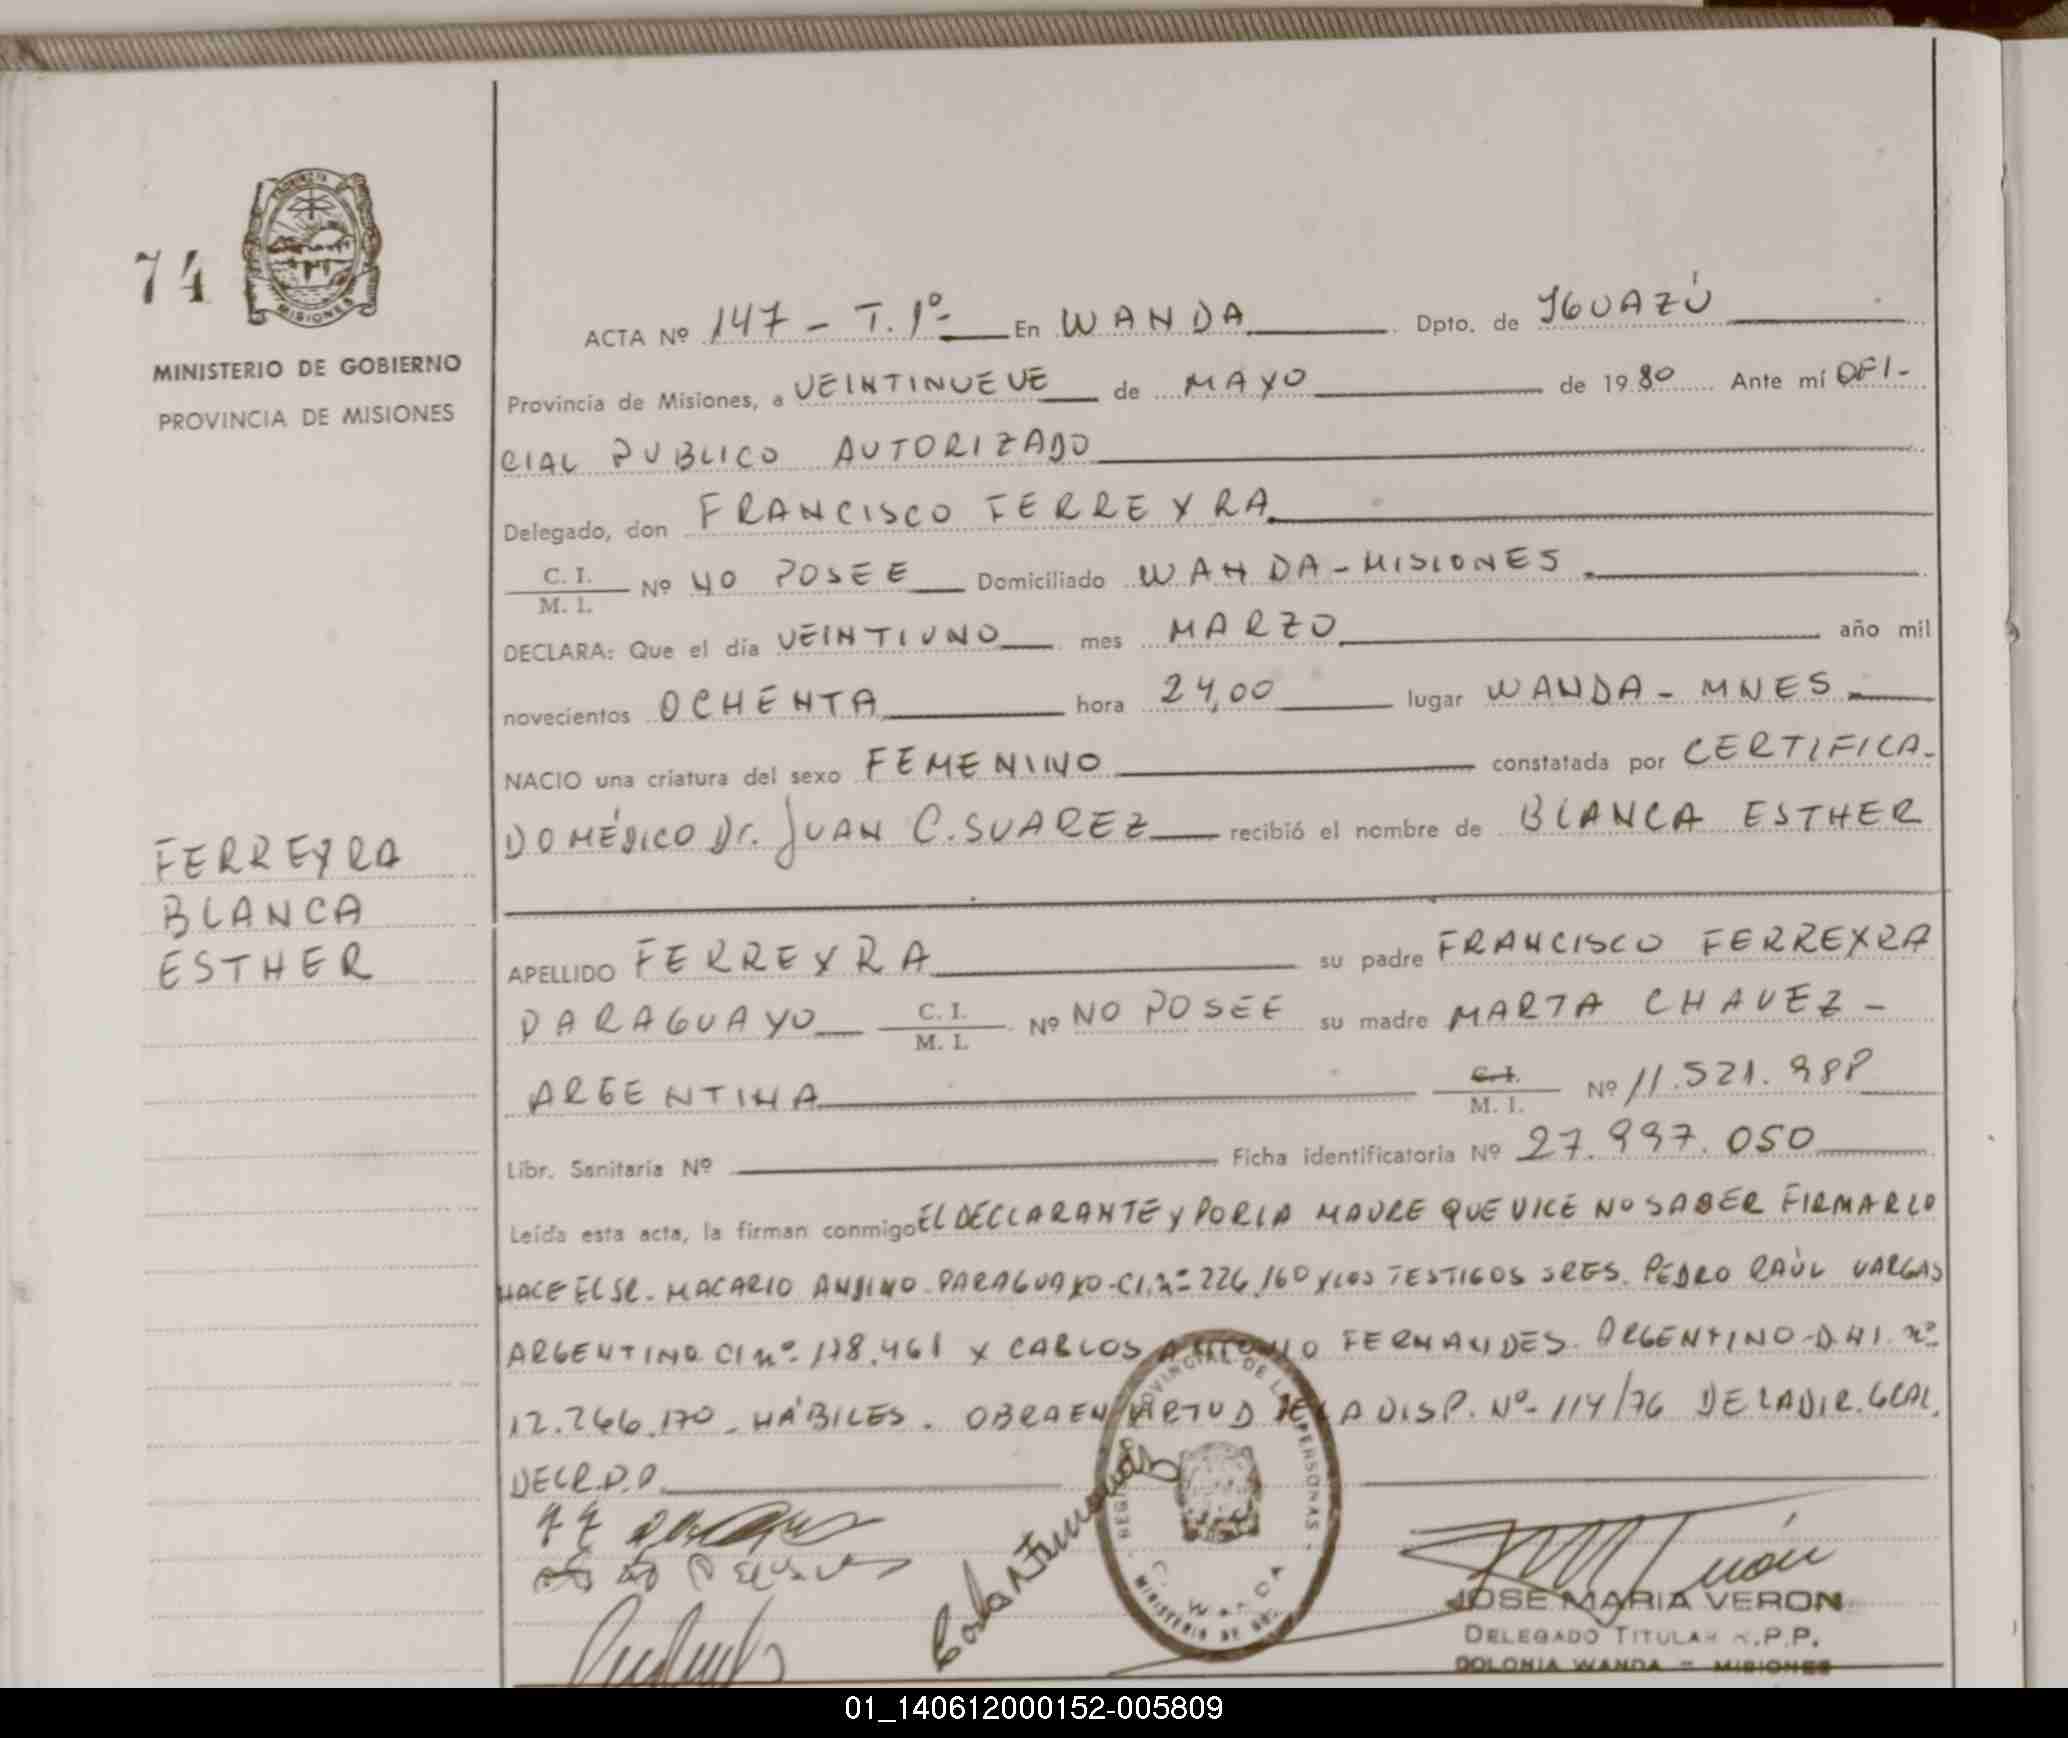 74
PROVINCIA
MISIONES
MINISTERIO DE GOBIERNO
PROVINCIA DE MISIONES
ACTA Nº 147 - T. 1º- En WANDA Dpto. de IGUAZÚ
Provincia de Misiones, a VEINTINUEVE de MAYO de 1980 Ante mí OFI-
CIAL PUBLICO AUTORIZADO
Delegado, don FRANCISCO FERREYRA
C. I.
M. I. Nº NO POSEE Domiciliado WANDA - MISIONES
DECLARA: Que el día VEINTIUNO mes MARZO año mil
novecientos OCHENTA hora 24,00 lugar WANDA - MNES
NACIO una criatura del sexo FEMENINO constatada por CERTIFICA-
DO MÉDICO Dr. JUAN C. SUAREZ recibió el nombre de BLANCA ESTHER
FERREYRA
BLANCA
ESTHER
APELLIDO FERREYRA su padre FRANCISCO FERREYRA
PARAGUAYO C. I.
M. I. Nº NO POSEE su madre MARTA CHAVEZ -
ARGENTINA C. I.
M. I. Nº 11.521.988
Libr. Sanitaria Nº Ficha identificatoria Nº 27.997.050
Leída esta acta, la firman conmigo EL DECLARANTE y POR LA MADRE QUE DICE NO SABER FIRMAR LO
HACE EL SR. MACARIO PARAGUAYO - CI. nº 226.160 y LOS TESTIGOS SRES. PEDRO RAÚL VARGAS
ARGENTINO CI nº 178.461 y CARLOS ANTONIO FERNANDES. ARGENTINO - D.N.I. nº
12.766.170 - HÁBILES. OBRA EN VIRTUD DE LA DISP. Nº 114/76 DE LA DIR. GRAL.
DEL R.P.P.
REGISTRO PROVINCIAL DE LAS PERSONAS
C. WANDA
MINISTERIO DE GOB.
JOSE MARIA VERON
DELEGADO TITULAR R.P.P.
COLONIA WANDA - MISIONES
01_140612000152-005809